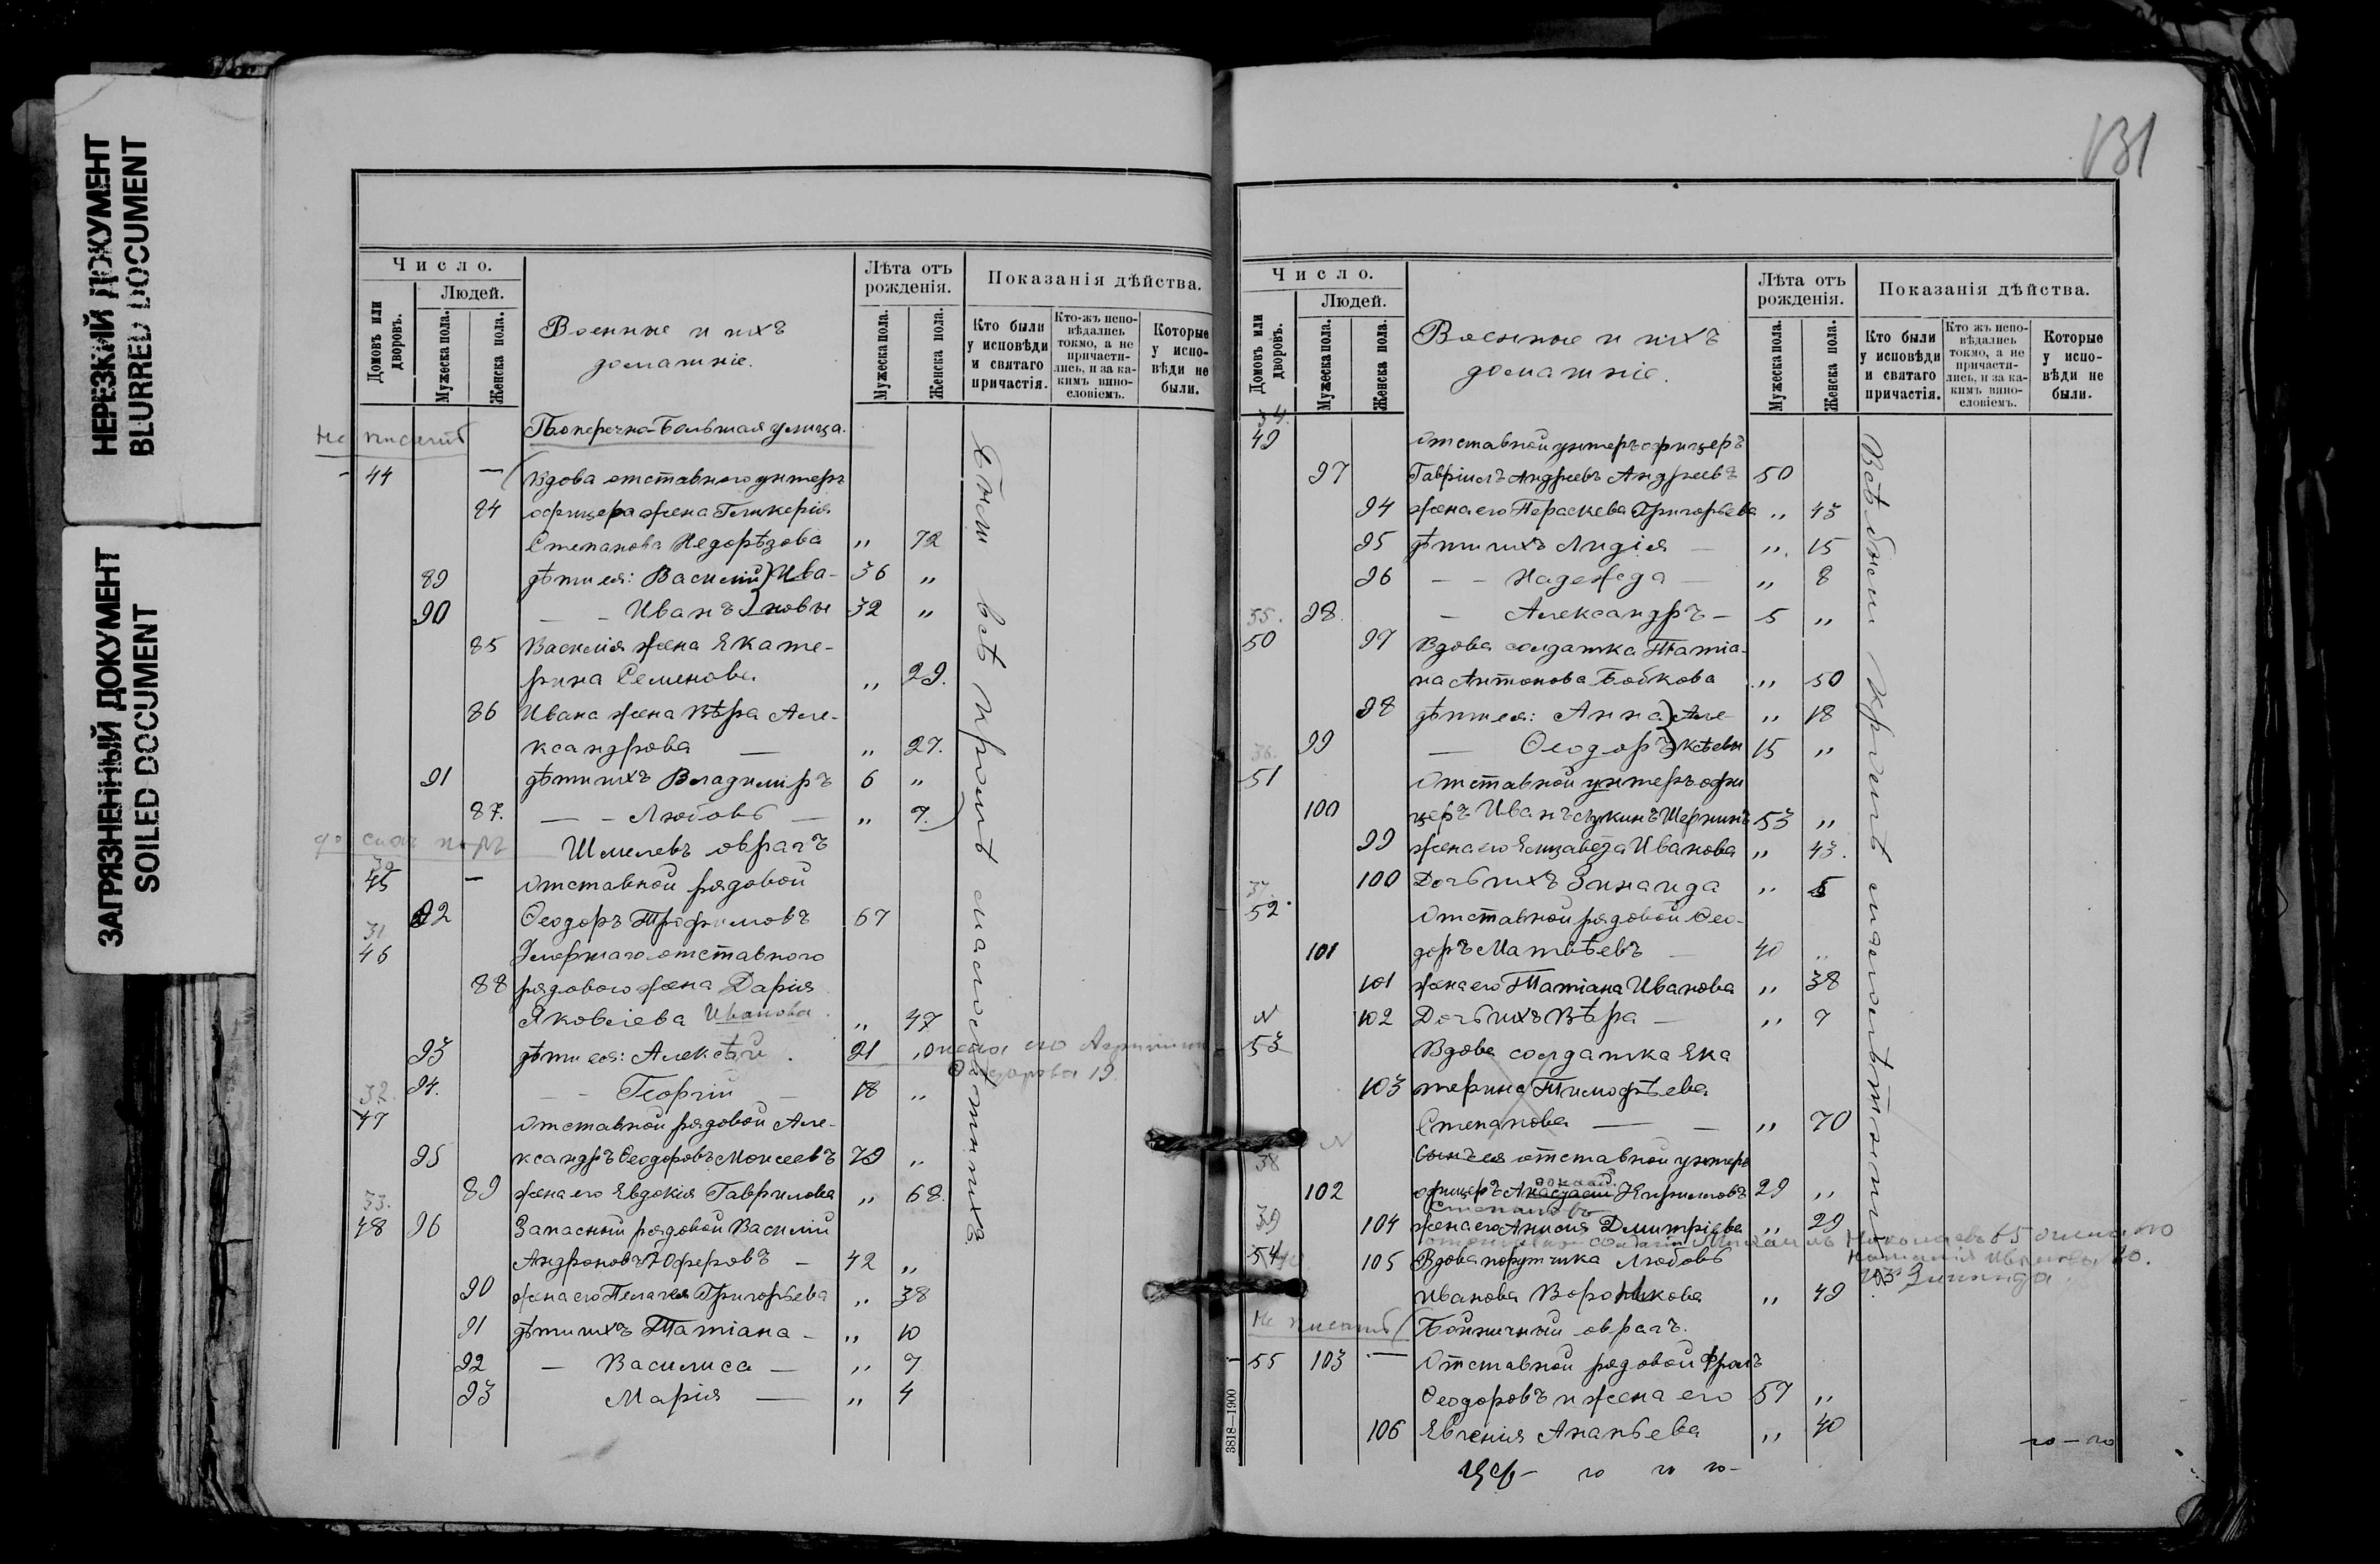 НЕРЕЗКИЙ ДОКУМЕНТ
BLURRED DOCUMENT
ЗАГРЯЗНЕННЫЙ ДОКУМЕНТ
SOILED DOCUMENT
Число.
Людей.
Домовъ или дворовъ.
Мужеска пола.
Женска пола.
Военные и ихъ
домашніе.
Лѣта отъ рожденія.
Мужеска пола.
Женска пола.
Показанія дѣйства.
Кто были у исповѣди и святаго причастія.
Кто-жъ исповѣдались токмо, а не причастились, и за какимъ винословіемъ.
Которые у исповѣди не были.
Не писать
Поперечно-Большая улица.
44 — Вдова отставного унтеръ
84 офицера жена Гликерія
Степанова Недорѣзова „ 72
89 дѣти ея: Василій } Ива- 36 „
90 — – Иванъ } новы 32 „
85 Василія жена Екате-
рина Семенова „ 29.
86 Ивана жена Вѣра Але-
ксандрова — „ 27.
91 дѣти ихъ Владиміръ 6 „
87. — – Любовь — „ 7.
Шмелевъ оврагъ
30
45 – Отставной рядовой
92 Ѳеодоръ Трофимовъ 67
31
46 Умершаго отставного
88 рядового жена Дарія
Яковлева Иванова. „ 47
93 дѣти ея: Алексѣй . 21 „ жена его
Ѳедорова 19
94. – – Георгій — 18 „
32.
47 Отставной рядовой Але-
95 ксандръ Ѳеодоровъ Моисеевъ 79 „
89 жена его Евдокія Гаврилова „ 68.
33.
48 96 Запасный рядовой Василій
Андроновъ — 42 „
90 жена его Пелагія Григорьева „ 38
91 дѣти ихъ Татіана – „ 10
92 — Василиса — „ 7
93 Марія — „ 4
Были всѣ кромѣ малолѣтнихъ
131
Число.
Людей.
Домовъ или дворовъ.
Мужеска пола.
Женска пола.
Военные и ихъ
домашніе.
Лѣта отъ рожденія.
Мужеска пола.
Женска пола.
Показанія дѣйства.
Кто были у исповѣди и святаго причастія.
Кто жъ исповѣдались токмо, а не причастились, и за какимъ винословіемъ.
Которые у исповѣди не были.
34.
49 Отставной унтеръ офицеръ
97 Гавріилъ Андреевъ Андреевъ 50
94 жена его Параскева Григорьева „ 43
95 дѣти ихъ Лидія — „ 15
96 – – Надежда — „ 8
98 – Александръ – 5 „
35.
50 97 Вдова солдатка Татіа-
на Антонова Бобкова „ 50
98 дѣти ея: Анна } Але- „ 18
99 — Ѳеодоръ } ксѣевы 15 „
36.
51 Отставной унтеръ офи
100 церъ Иванъ 53 „
99 жена его Елизавета Иванова „ 43.
100 Дочь ихъ Зинаида „ 5
37
52 Отставной рядовой Ѳео-
101 доръ Матвѣевъ — 40 „
101 жена его Татіана Иванова „ 38
102 Дочь ихъ Вѣра — „ 7
53 Вдова солдатка Ека
103 терина Тимофѣева
Степанова — — „ 70
38
Сынъ ея отставной унтеръ
102 офицеръ Кирилловъ 29 „
39 104 жена его Анисія Димитріева „ 29
Николаевъ 65
54 105 Вдова поручика Любовь
Зинаида.
Иванова Воронкова „ 49
Не писать
Бойничный оврагъ.
55 103 — Отставной рядовой Фролъ
Ѳеодоровъ и жена его 57 „
106 Евгенія Ананьева „ 40
Всѣ были кромѣ малолѣтнихъ
3818—1900